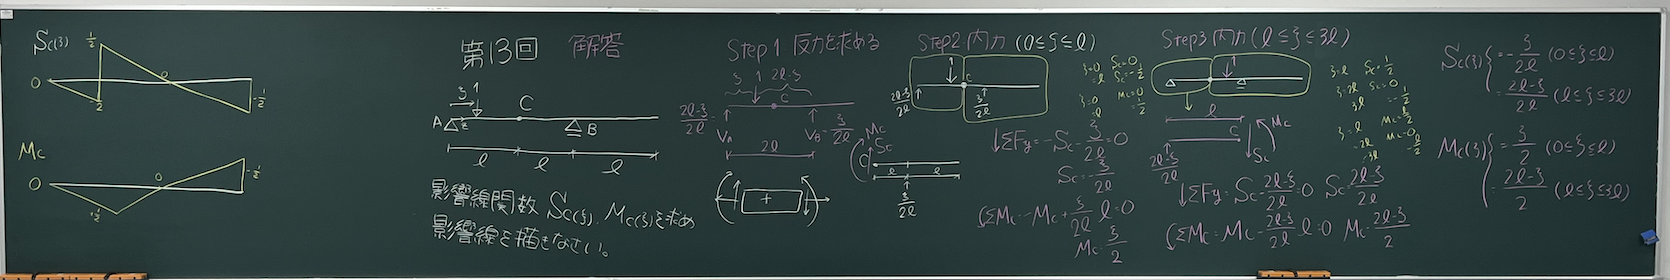 Sc(ξ)
1/2
0
0
-1/2
-1/2
Mc
0
0
-l/2
l/2
第13回 解答
ξ
C
A
B
l
l
l
影響線関数 Sc(ξ), Mc(ξ)を求め
影響線を描きなさい。
Step1 反力を求める
ξ 2l-ξ
C
2l-ξ/2l
VA
VB=ξ/2l
2l
+
Step2 内力 (0≤ξ≤l)
C
2l-ξ/2l
ξ/2l
Mc
Sc
C
l
l
ξ/2l
ξ=0 Sc=0
=l Sc=-1/2
ξ=0 Mc=0
=l =l/2
↓ΣFy=-Sc-ξ/2l=0
Sc=-ξ/2l
ΣMc=-Mc+ξ/2l l=0
Mc=ξ/2
Step3 内力 (l≤ξ≤3l)
l
C
Mc
Sc
2l-ξ/2l
ξ=l Sc=1/2
ξ=2l Sc=0
3l -1/2
ξ=l Mc=l/2
=2l Mc=0
=3l -l/2
↓ΣFy=Sc-2l-ξ/2l=0 Sc=2l-ξ/2l
ΣMc=Mc-2l-ξ/2l l=0 Mc=2l-ξ/2
Sc(ξ) =-ξ/2l (0≤ξ≤l)
=2l-ξ/2l (l≤ξ≤3l)
Mc(ξ) =ξ/2 (0≤ξ≤l)
=2l-ξ/2 (l≤ξ≤3l)